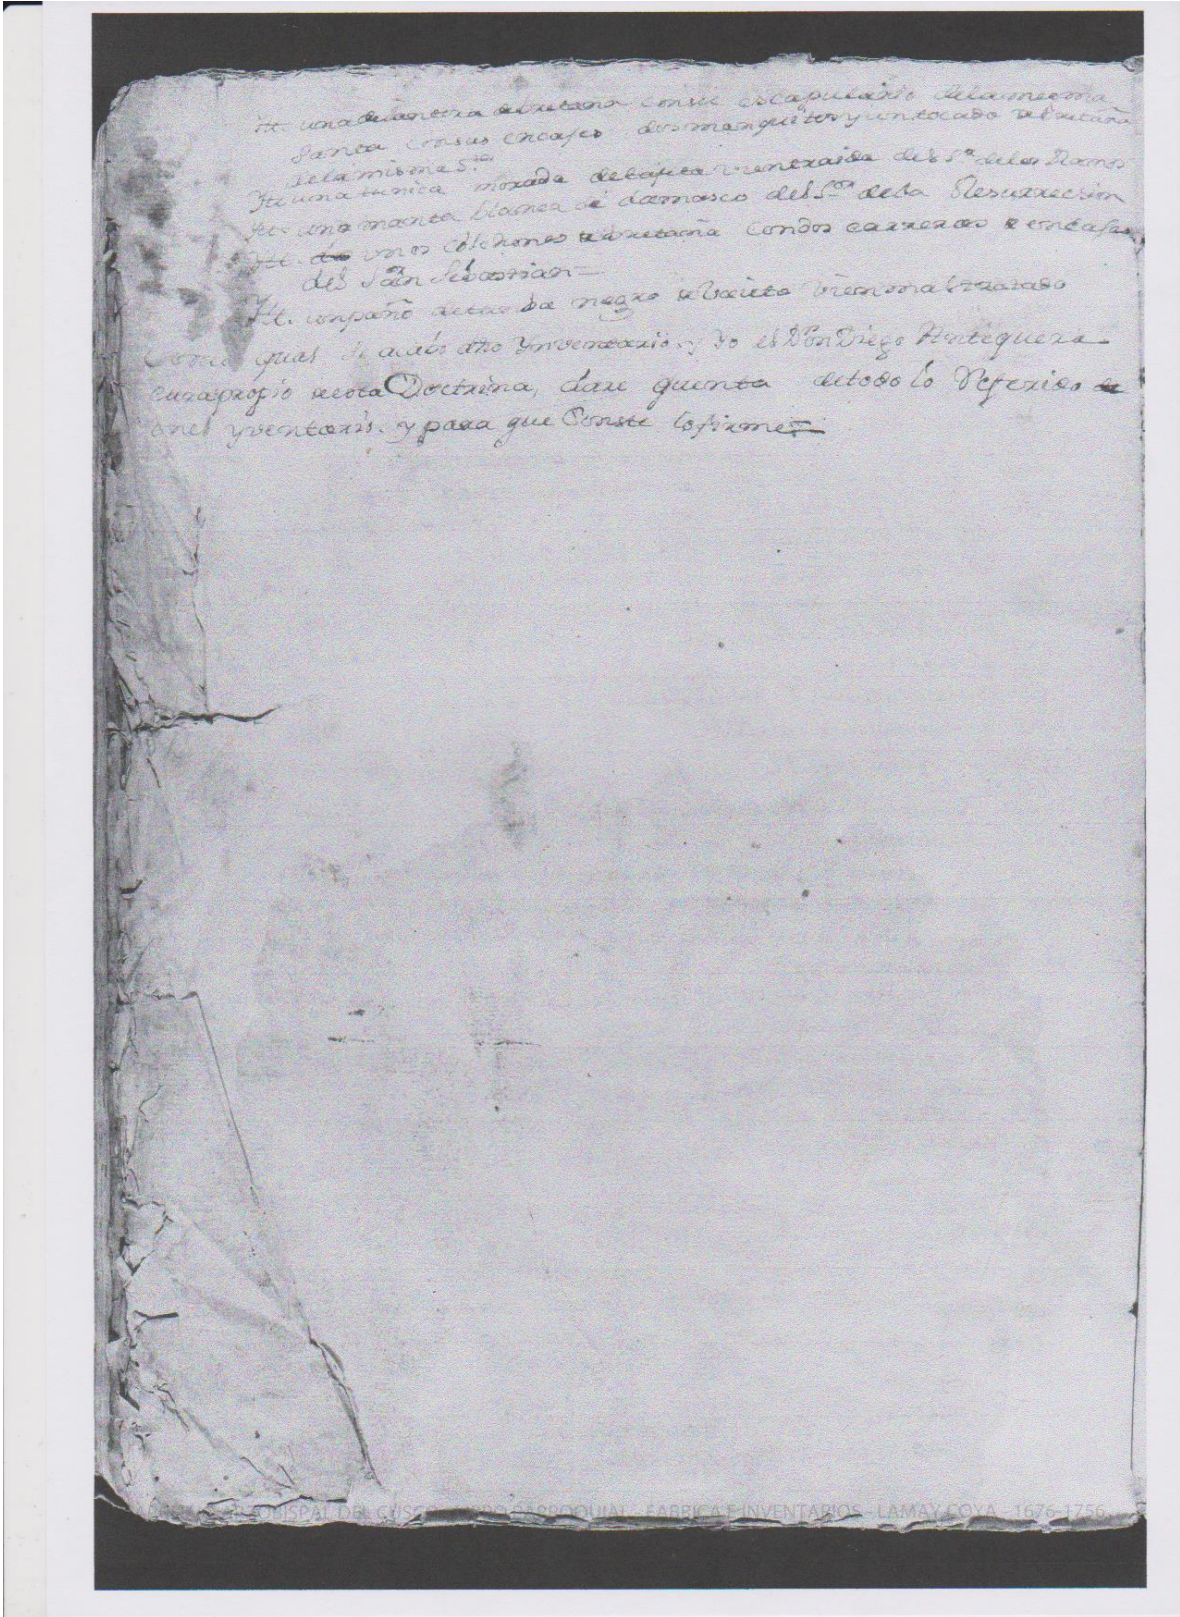 It. una delantera de bretaña con su escapulario de la mesma
Santa con sus encajes dos manguitos y un tocado de bretaña
de la misma S.ta
It. una tunica morada de tafeta del S.r de los Ramos
It. una manta blanca de damasco del S.or de la Resurreccion
It. unos calsones de bretaña con dos carreras de encajes
del San Sebastian
It. un paño de negro bien maltratado
qual se acabó dho Ynventario. y Yo el D.n Diego Antequera
cura propio desta Doctrina, dare quenta de todo lo Referido
yventario. y para que Conste lo firme
ARZOBISPAL DEL CUSCO - LIBRO PARROQUIAL - FABRICA E INVENTARIOS - LAMAY COYA - 1676-1756